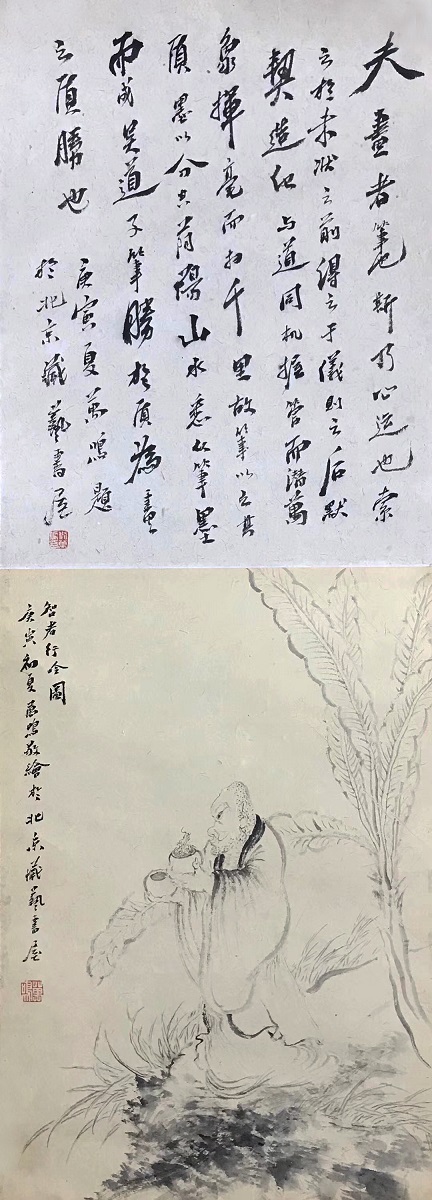 夫畫者筆也斯乃心运也索
之於未状之前得之于儀则之后默
契造化与道同机握管而潜萬
象揮毫而扫千里故筆以立其
质墨以分其阴陽山水悉从筆墨
而成吴道子筆勝於质為畫
之质勝也
庚寅夏萬鸣題
於北京藏藝書屋
智者行圖
庚寅初夏鸣敬繪於北京藏藝書屋